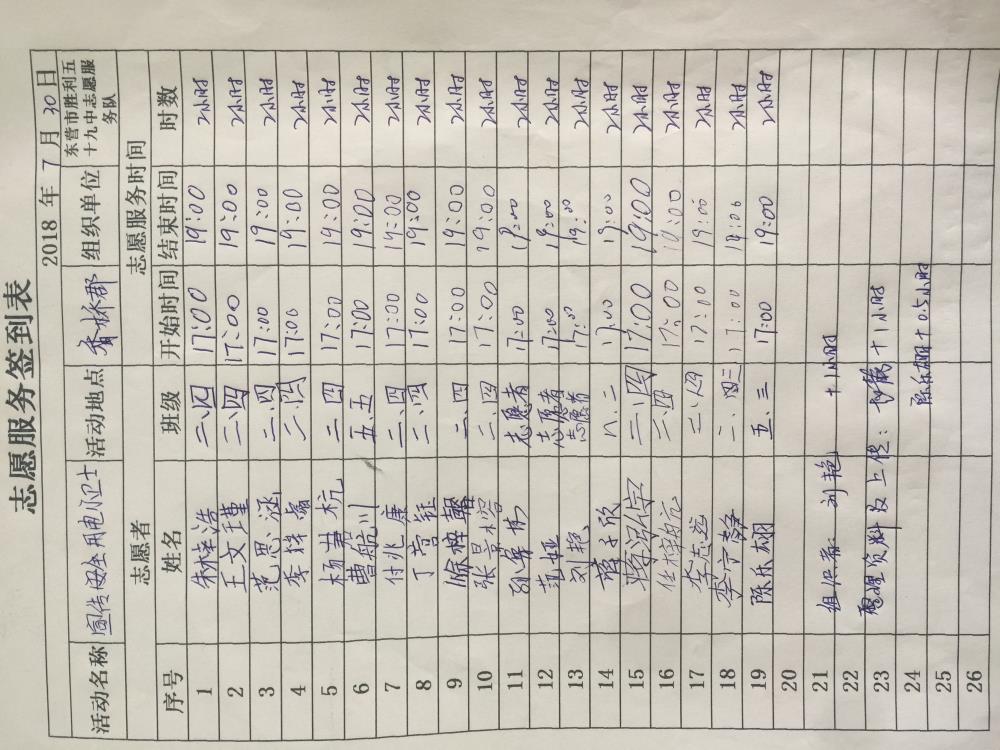 志愿服务签到表
2018 年 7 月 30 日
活动名称 宣传安全用电小卫士 活动地点 香林郡 组织单位 东营市胜利五十九中志愿服务队
志愿者 志愿服务时间
序号 姓名 班级 开始时间 结束时间 时数
1 浩 二.四 17:00 19:00 2小时
2 王文瑾 二.四 17:00 19:00 2小时
3 范思涵 二.四 17:00 19:00 2小时
4 李梓睿 二.四 17:00 19:00 2小时
5 杨君杭 二.四 17:00 19:00 2小时
6 曹航川 五.五 17:00 19:00 2小时
7 付兆康 二.四 17:00 19:00 2小时
8 丁钰 二.四 17:00 19:00 2小时
9 徐梓馨 二.四 17:00 19:00 2小时
10 张景 二.四 17:00 19:00 2小时
11 志愿者 17:00 19:00 2小时
12 范娅 志愿者 17:00 19:00 2小时
13 刘艳 志愿者 17:00 19:00 2小时
14 子欣 八.二 17:00 19:00 2小时
15 二.四 17:00 19:00 2小时
16 任梓航 二.四 17:00 19:00 2小时
17 李志远 二.四 17:00 19:00 2小时
18 李宁 二.四 17:00 19:00 2小时
19 陈乐栩 五.三 17:00 19:00 2小时
20
21 组织者: 刘艳 +1小时
22
23 整理资料及上传: +1小时
24 陈乐栩+0.5小时
25
26